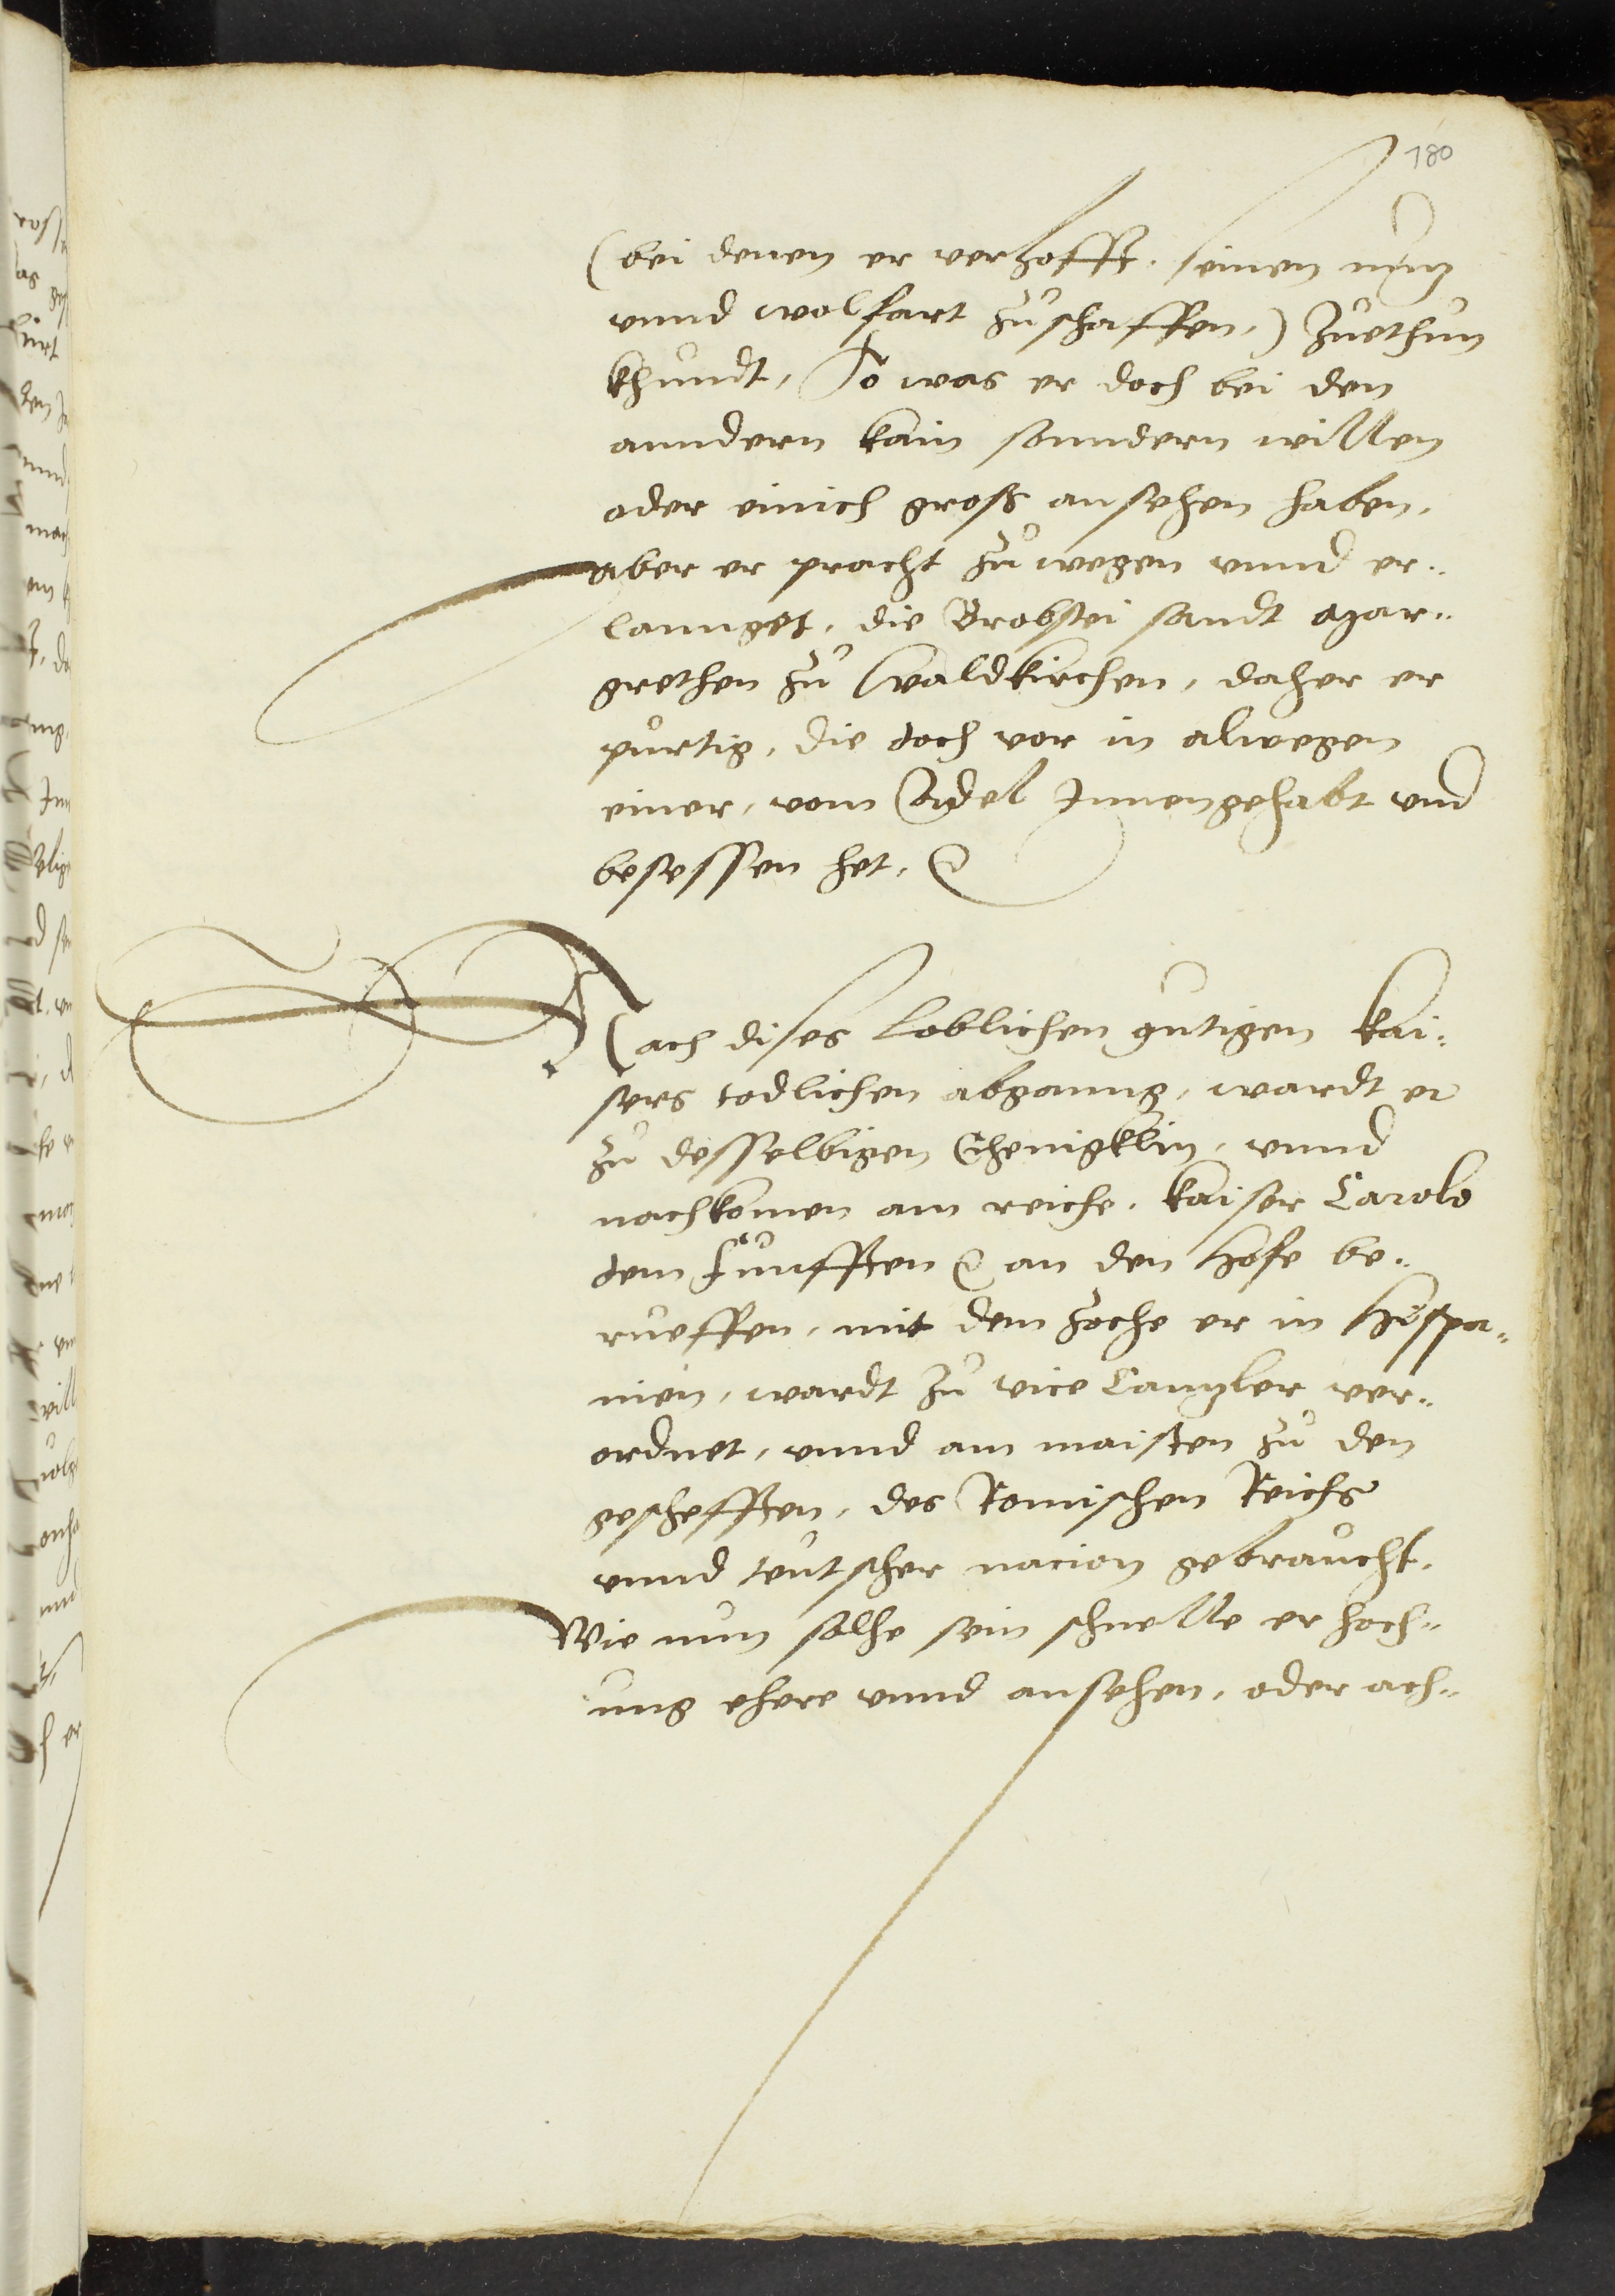 180
(bei denen er verhofft. seinen nutz
vnnd wolfart zůschaffen,) zuethun
khundt, So was er doch bei den
anndern kain sonndern willen
oder einich gross ansehen haben,
Aber er pracht zů wegen vnnd er¬
lannget, die Brobstei sandt Mar¬
grethen zů Waldkirchen, daher er
pürtig, die doch vor in alwegen
einer, vom Adel Innengehabt vnd
besessen het, 
Nach dises loblichen gutigen kai¬
sers todlichen abganng, wardt er
zů desselbigen Ehenigklin, vnnd
nachkomen am reiche, kaiser Carolo
dem Fünfften an den Hofe be¬
rueffen, mit dem zoche er in Hispa¬
nien, wardt zů vice Canntzler ver¬
ordnet, vnnd am maisten zů den
geschefften, des Romischen Reichs
vnnd teutscher nacion gebraucht,
Wie nun solhe sein schnelle erhoch¬
ung ehere vnnd ansehen, oder ach¬